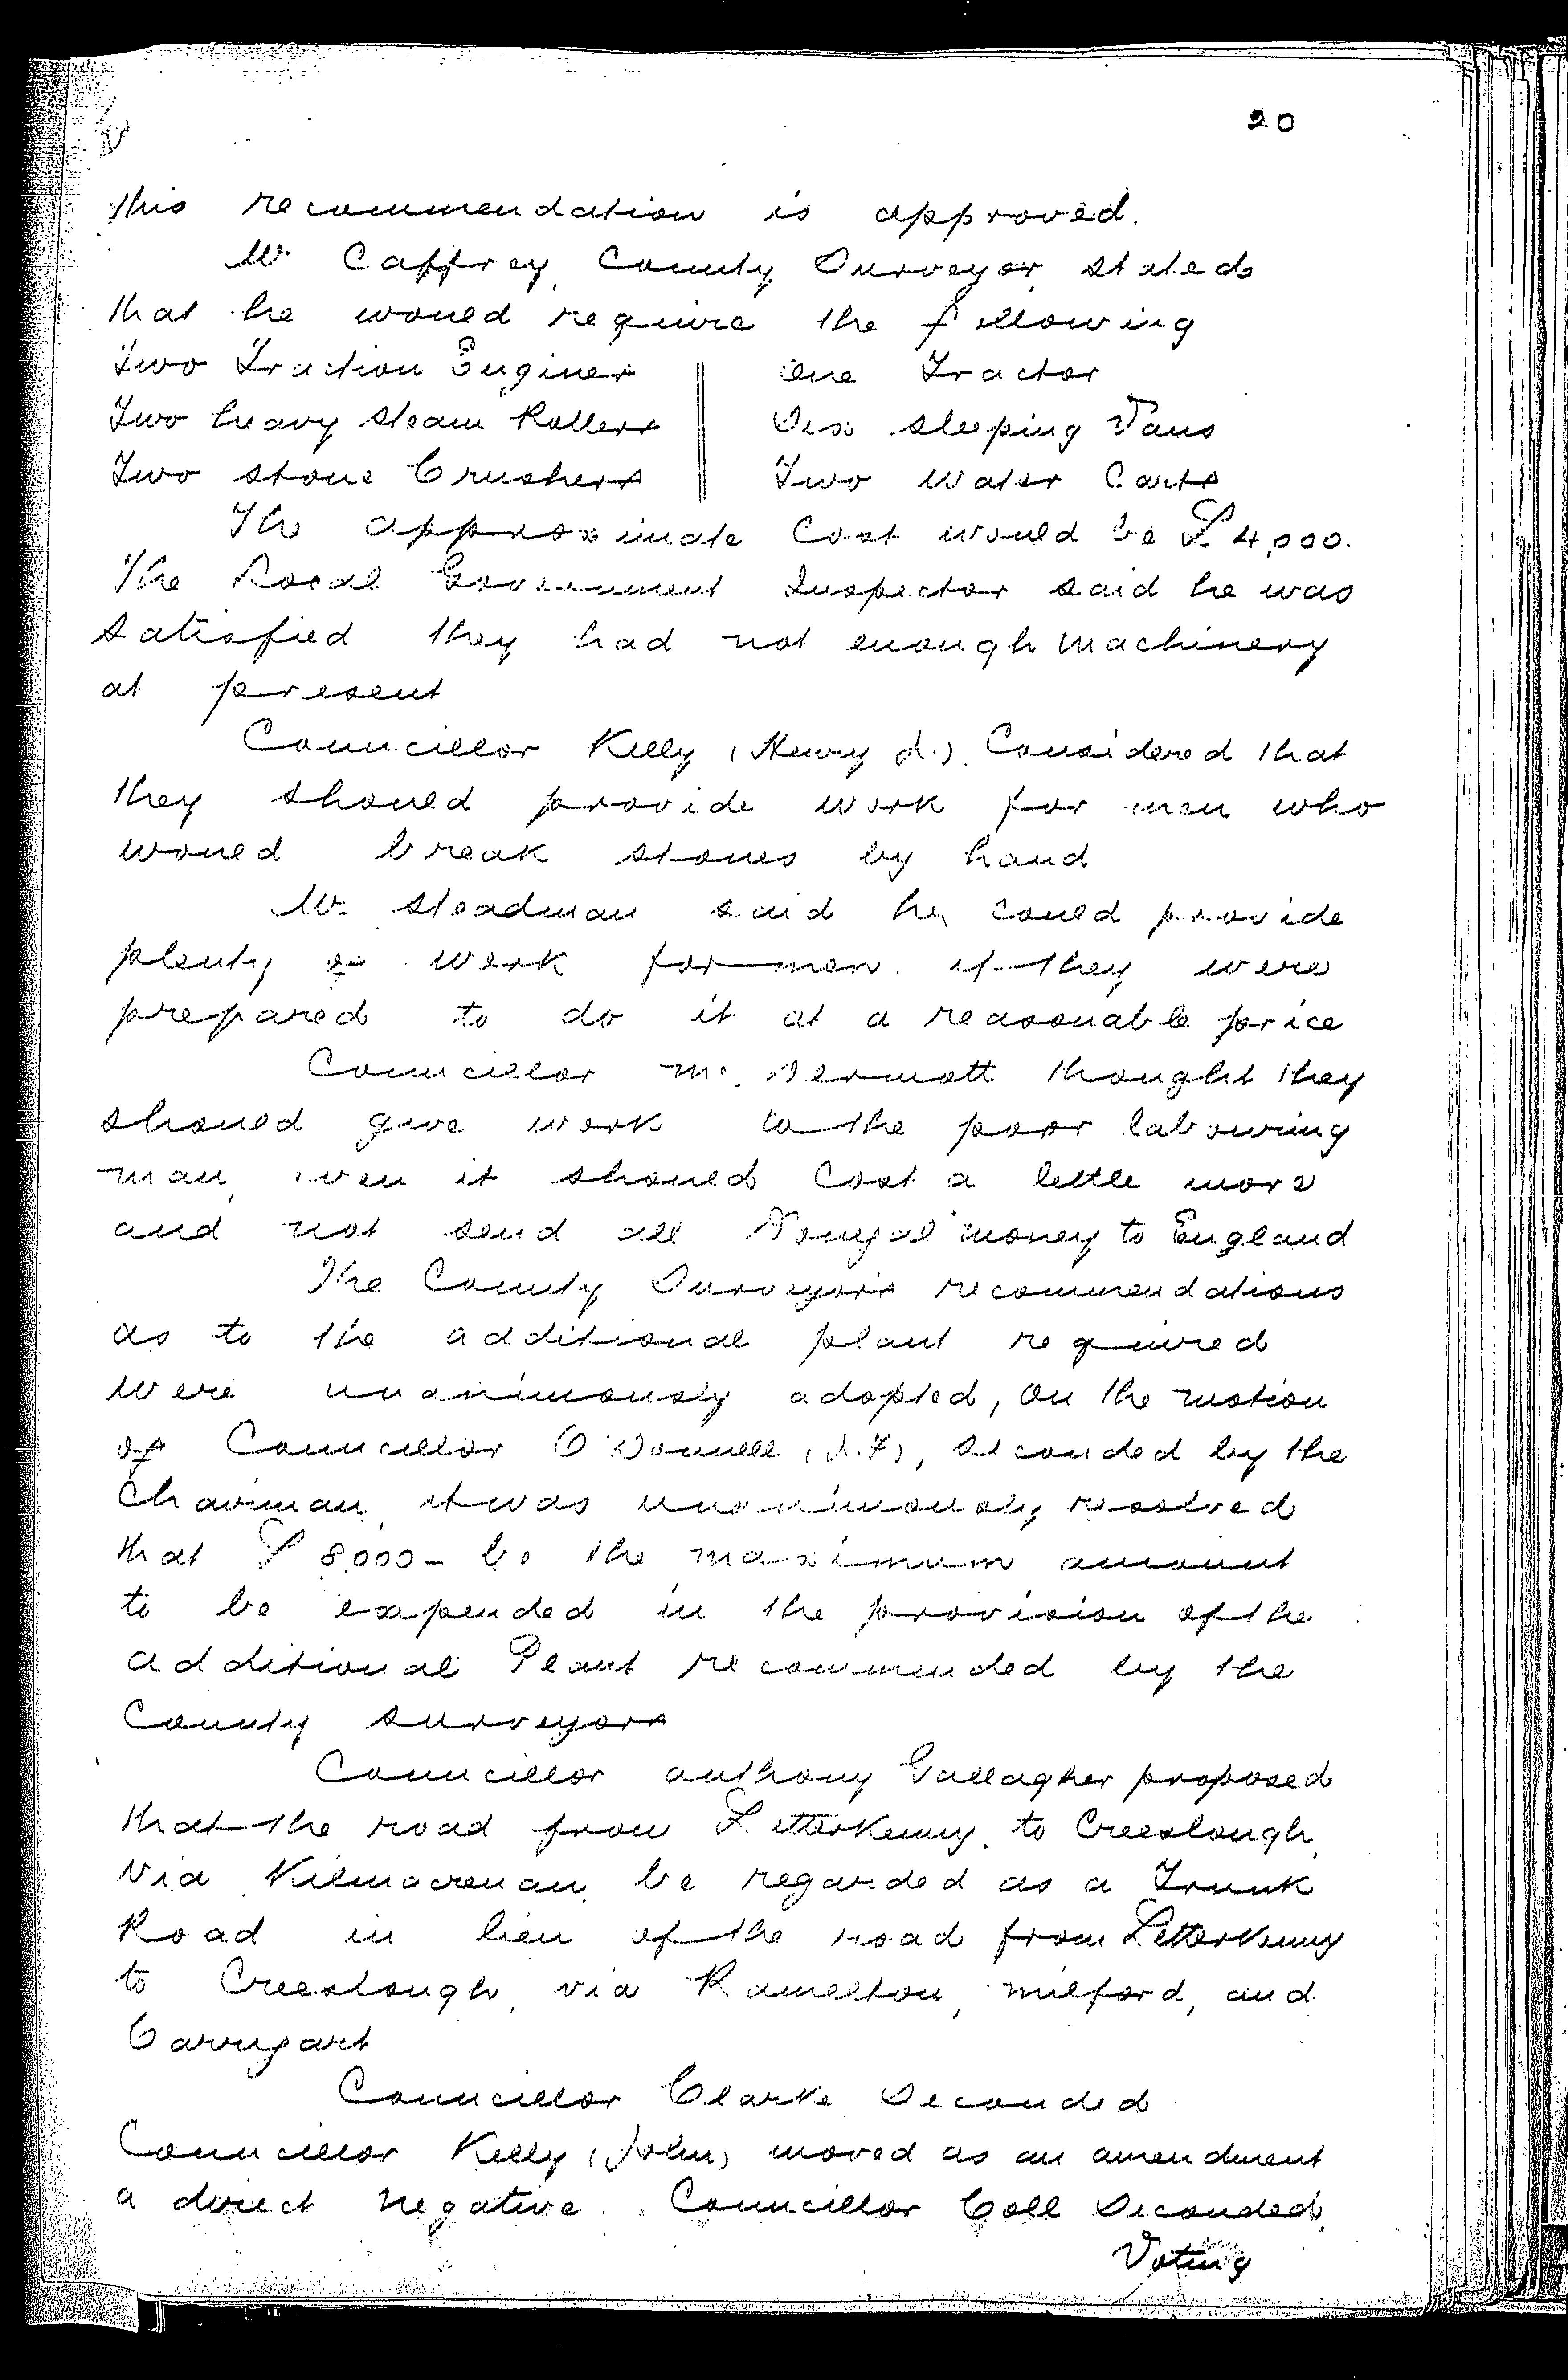 20
this recommendation is approved.
Mr. Caffrey, County Surveyor, stated
that he would require the following
Two Traction Engines || One Tractor
Two heavy steam Rollers || Six sleeping Vans
Two stone Crushers || Two Water Carts
The approximate Cost would be £4,000.
The Local Government Inspector said he was
satisfied they had not enough machinery
at present
Councillor Kelly (Henry J.). Considered that
they should provide work for men who
would break stones by hand
Mr. Steadman said he could provide
plenty of work for men if they were
prepared to do it at a reasonable price
Councillor Mc. Dermott thought they
should give work to the poor labouring
man, even it should cost a little more
and not send all Donegal money to England
The County Surveyors recommendations
as to the additional plant required
were unanimously adopted, On the motion
of Councillor O'Donnell (J.F), seconded by the
Chairman, it was unanimously resolved
that £8,000- be the maximum amount
to be expended in the provision of the
additional Plant recommended by the
County surveyors
Councillor Anthony Gallagher proposed
that the road from Letterkenny, to Creeslough,
via Kilmacrenan, be regarded as a Trunk
Road in lieu of the road from Letterkenny
to Creeslough, via Ramelton, Milford, and
Carrigart
Councillor Clarke Seconded
Councillor Kelly (John) moved as an amendment
a direct negative. Councillor Coll Seconded,
Voting